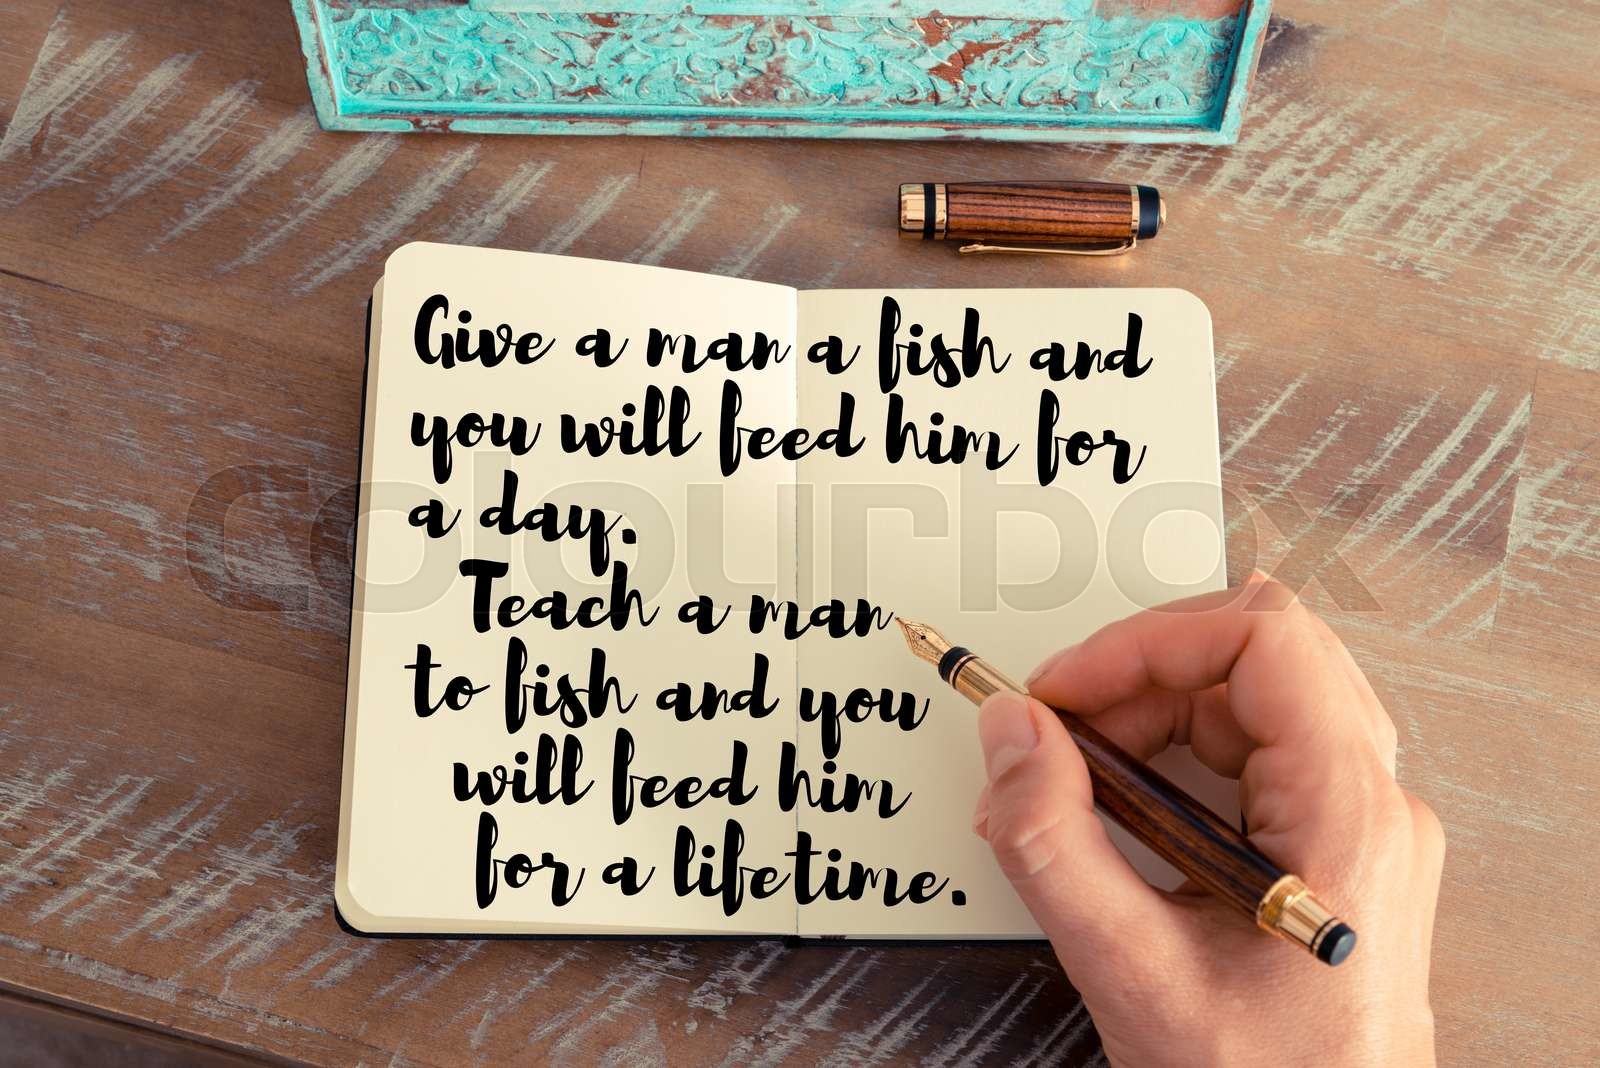 Give a man a fish and
you will feed him for
a day.
Teach a man
to fish and you
will feed him
for a lifetime.
colourbox